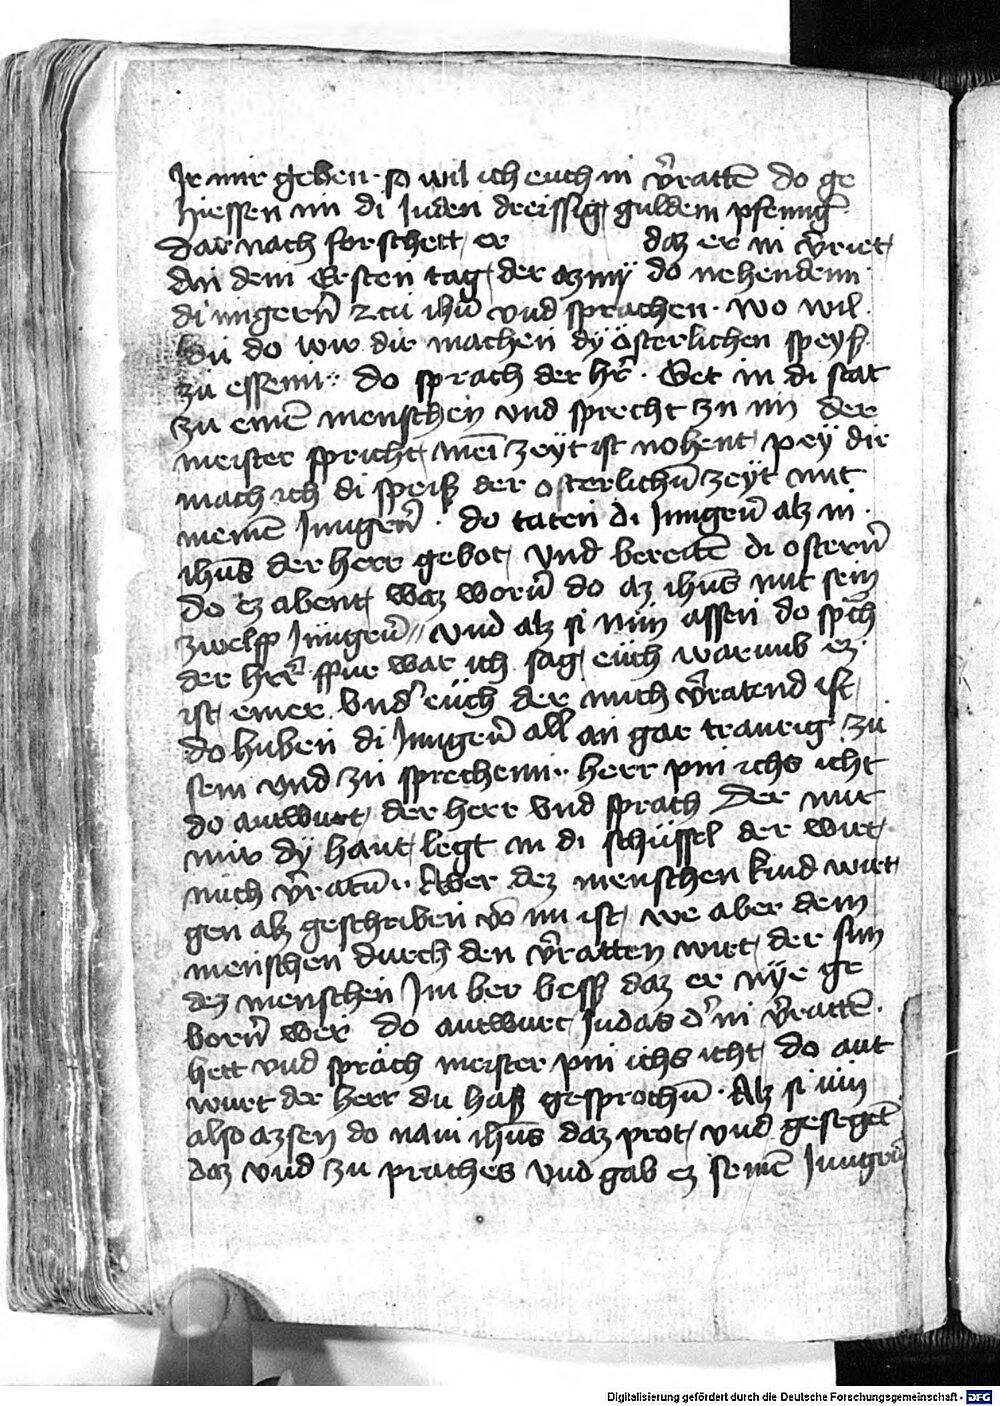 Ir mir geben · so wil ich euch in v̄ratē do ge
hiessen im di Juden dreissig guldein pfennig
Dar nach forschett er daz er in v̄riet
An dem Ersten tag der azimÿ do nehendenn
di iungerñ zcu ihū vnd sprachen · wo wil
du do wir dir machen dÿ österlichen speyß
zu essenn · do sprach der hr̄ · Get in di stat
zu einē menschen vnd sprecht zu im der
meister spricht mei zeyt ist nohent peÿ dir
mach ich di speiß der osterlichū zeÿt mit
meinē Jungerñ · do taten di Jungerñ alz in ·
ihūs der herr gebot vnd bereitē di osterñ
do ez abent waz worñ do az ihūs mit sein
zwelff Jüngerñ vnd alz si nün assen do sp̄ch
der hr̄r ffur war ich sag euch warumb ez
ist einer vnd' euch der mich v̄ratend ist
do huben di Jungerñ all an gar traurig zu
sein vnd zu sprechenn · herr pin ichs icht
do antwurt der herr vnd sprach Der mit
mir dÿ hant legt in di schüssel der wirt
mich v̄ratū · Aber dez menschen kind wirt
gen alz geschriben vō im ist we aber dem
menschen durch den v̄ratten wirt der sun
dez menschen Im ber besß daz er nÿe ge
borñ wer do antwurt Judas d' in v̄rattē
hett vnd sprach meister pin ichs icht do ant
wurt der herr du hast gesprochū · Alz si nün
also azsen do nam ihūs daz prot vnd gesegēt
daz vnd zu praches vnd gab ez seinē Jungerñ
Digitalisierung gefördert durch die Deutsche Forschungsgemeinschaft - DFG